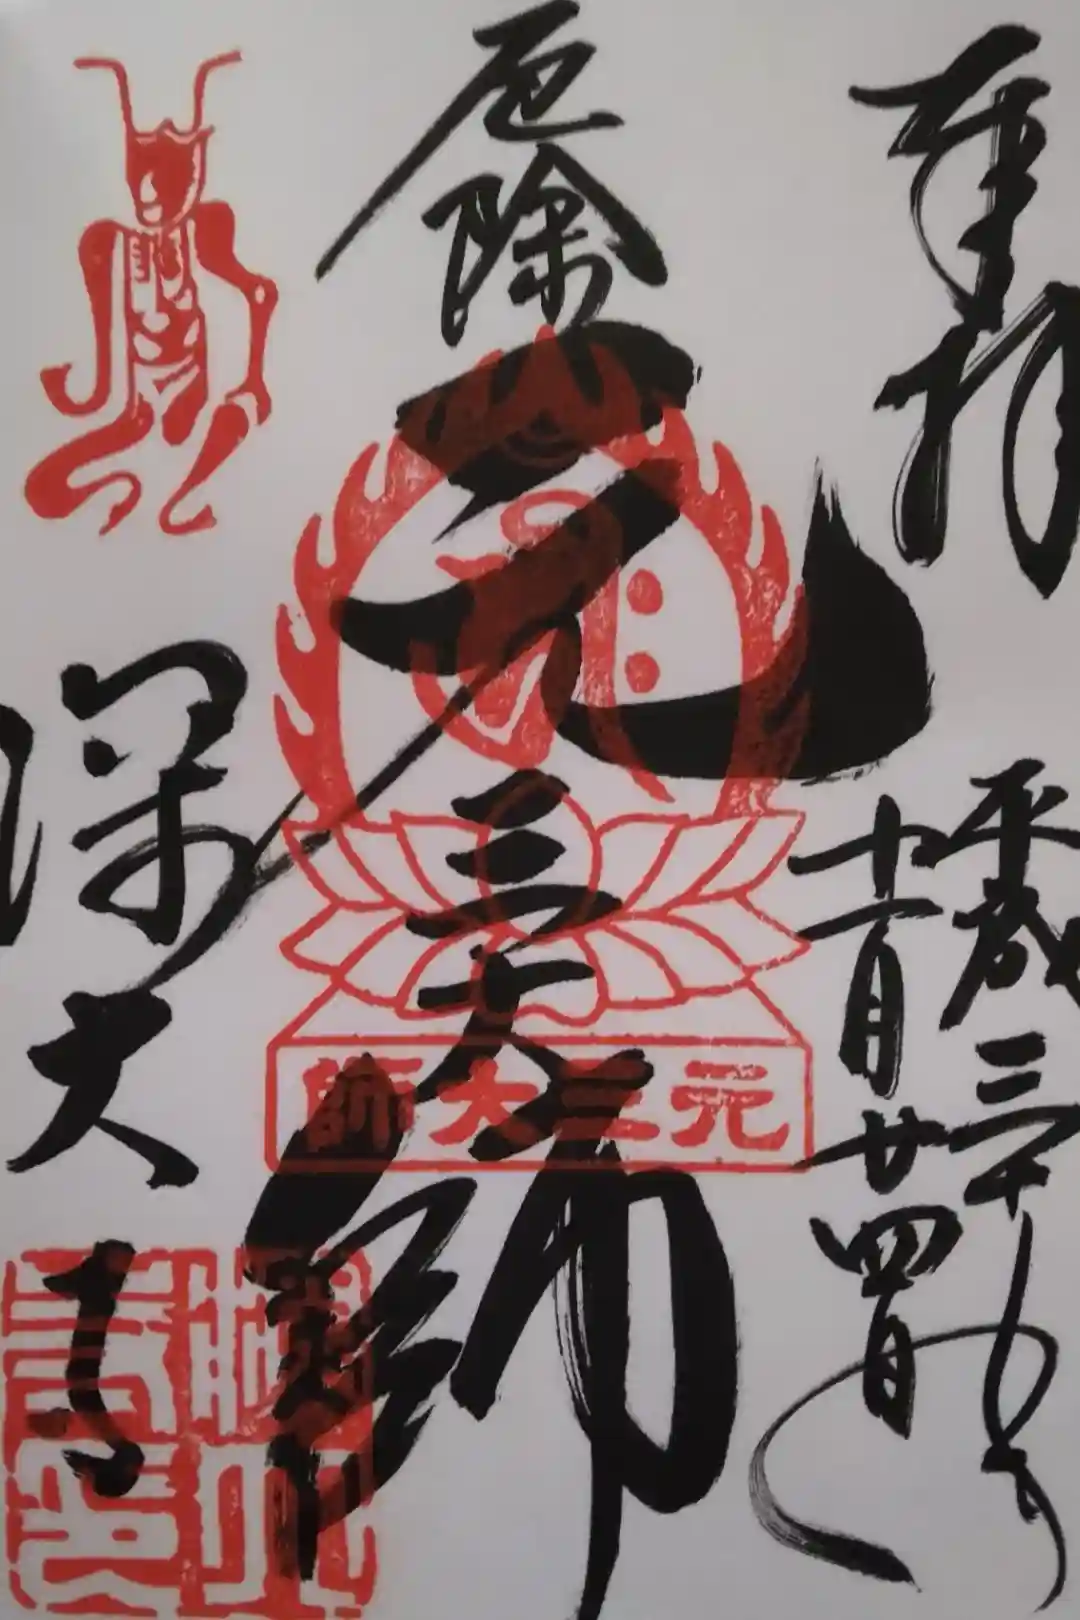 奉拝
平成三十年
十一月廿四日
厄除
元三大師
深大寺
元三大師